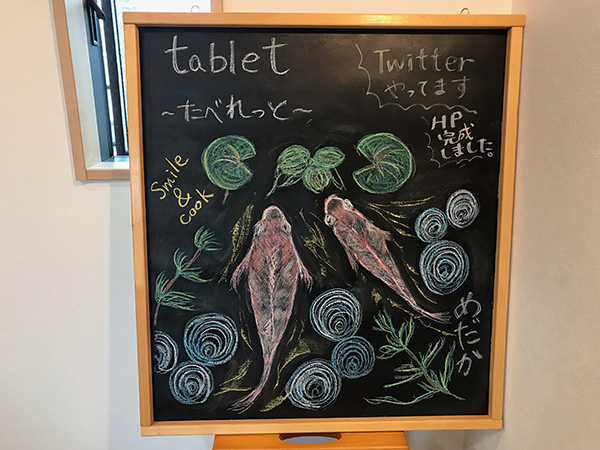 tablet
～たべれっと～
Twitter
やってます
HP
完成
しました。
Smile
&
cook
めだか